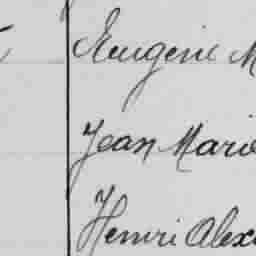 Eugène M
Jean Marie
Henri Alex